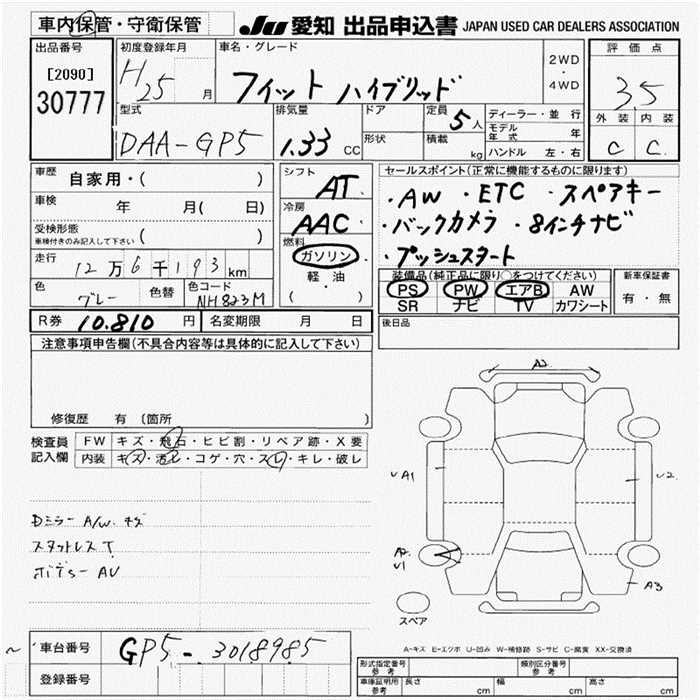 車内保管・守衛保管
JU 愛知 出品申込書 JAPAN USED CAR DEALERS ASSOCIATION
出品番号
[2090]
30777
初度登録年月
H25 月
車名・グレード
フィット ハイブリッド
2WD
・
4WD
評価点
3.5
外装 内装
C C.
型式
DAA-GP5
排気量
1.33 CC
ドア
形状
定員
5人
積載
kg
ディーラー・並行
モデル年式 年
ハンドル 左・右
車歴
自家用・( )
車検
年 月( 日)
受検形態
車検付きのみ記入して下さい ( )
走行
12万6千193km
色
グレー
色替
色コード
NH823M
シフト
AT
冷房
AAC
燃料
ガソリン
・
軽・油
( )
セールスポイント(正常に機能するものに限ります)
・AW ・ETC ・スペアキー
・バックカメラ ・8インチナビ
・プッシュスタート
装備品(純正品に限り○をつけてください)
PS PW エアB AW
SR ナビ TV カワシート
新車保証書
有・無
R券 10.810 円 名変期限 月 日
後日品
注意事項申告欄(不具合内容等は具体的に記入して下さい)
修復歴 有(箇所 )
検査員
記入欄
FW キズ・飛石・ヒビ割・リペア跡・X要
内装 キズ・汚レ・コゲ・穴・スレ・キレ・破レ
Dミラー A/W キズ
スタットレス T
ボデー AU
A2
UA1
U2
A2
U1
A3
スペア
A-キズ E-エクボ U-凹み W-補修跡 S-サビ C-腐食 XX-交換済
車台番号
GP5-3018985
登録番号
形式指定番号
参考
類別区分番号
参考
車庫証明用
参考
長さ cm 幅 cm 高さ cm